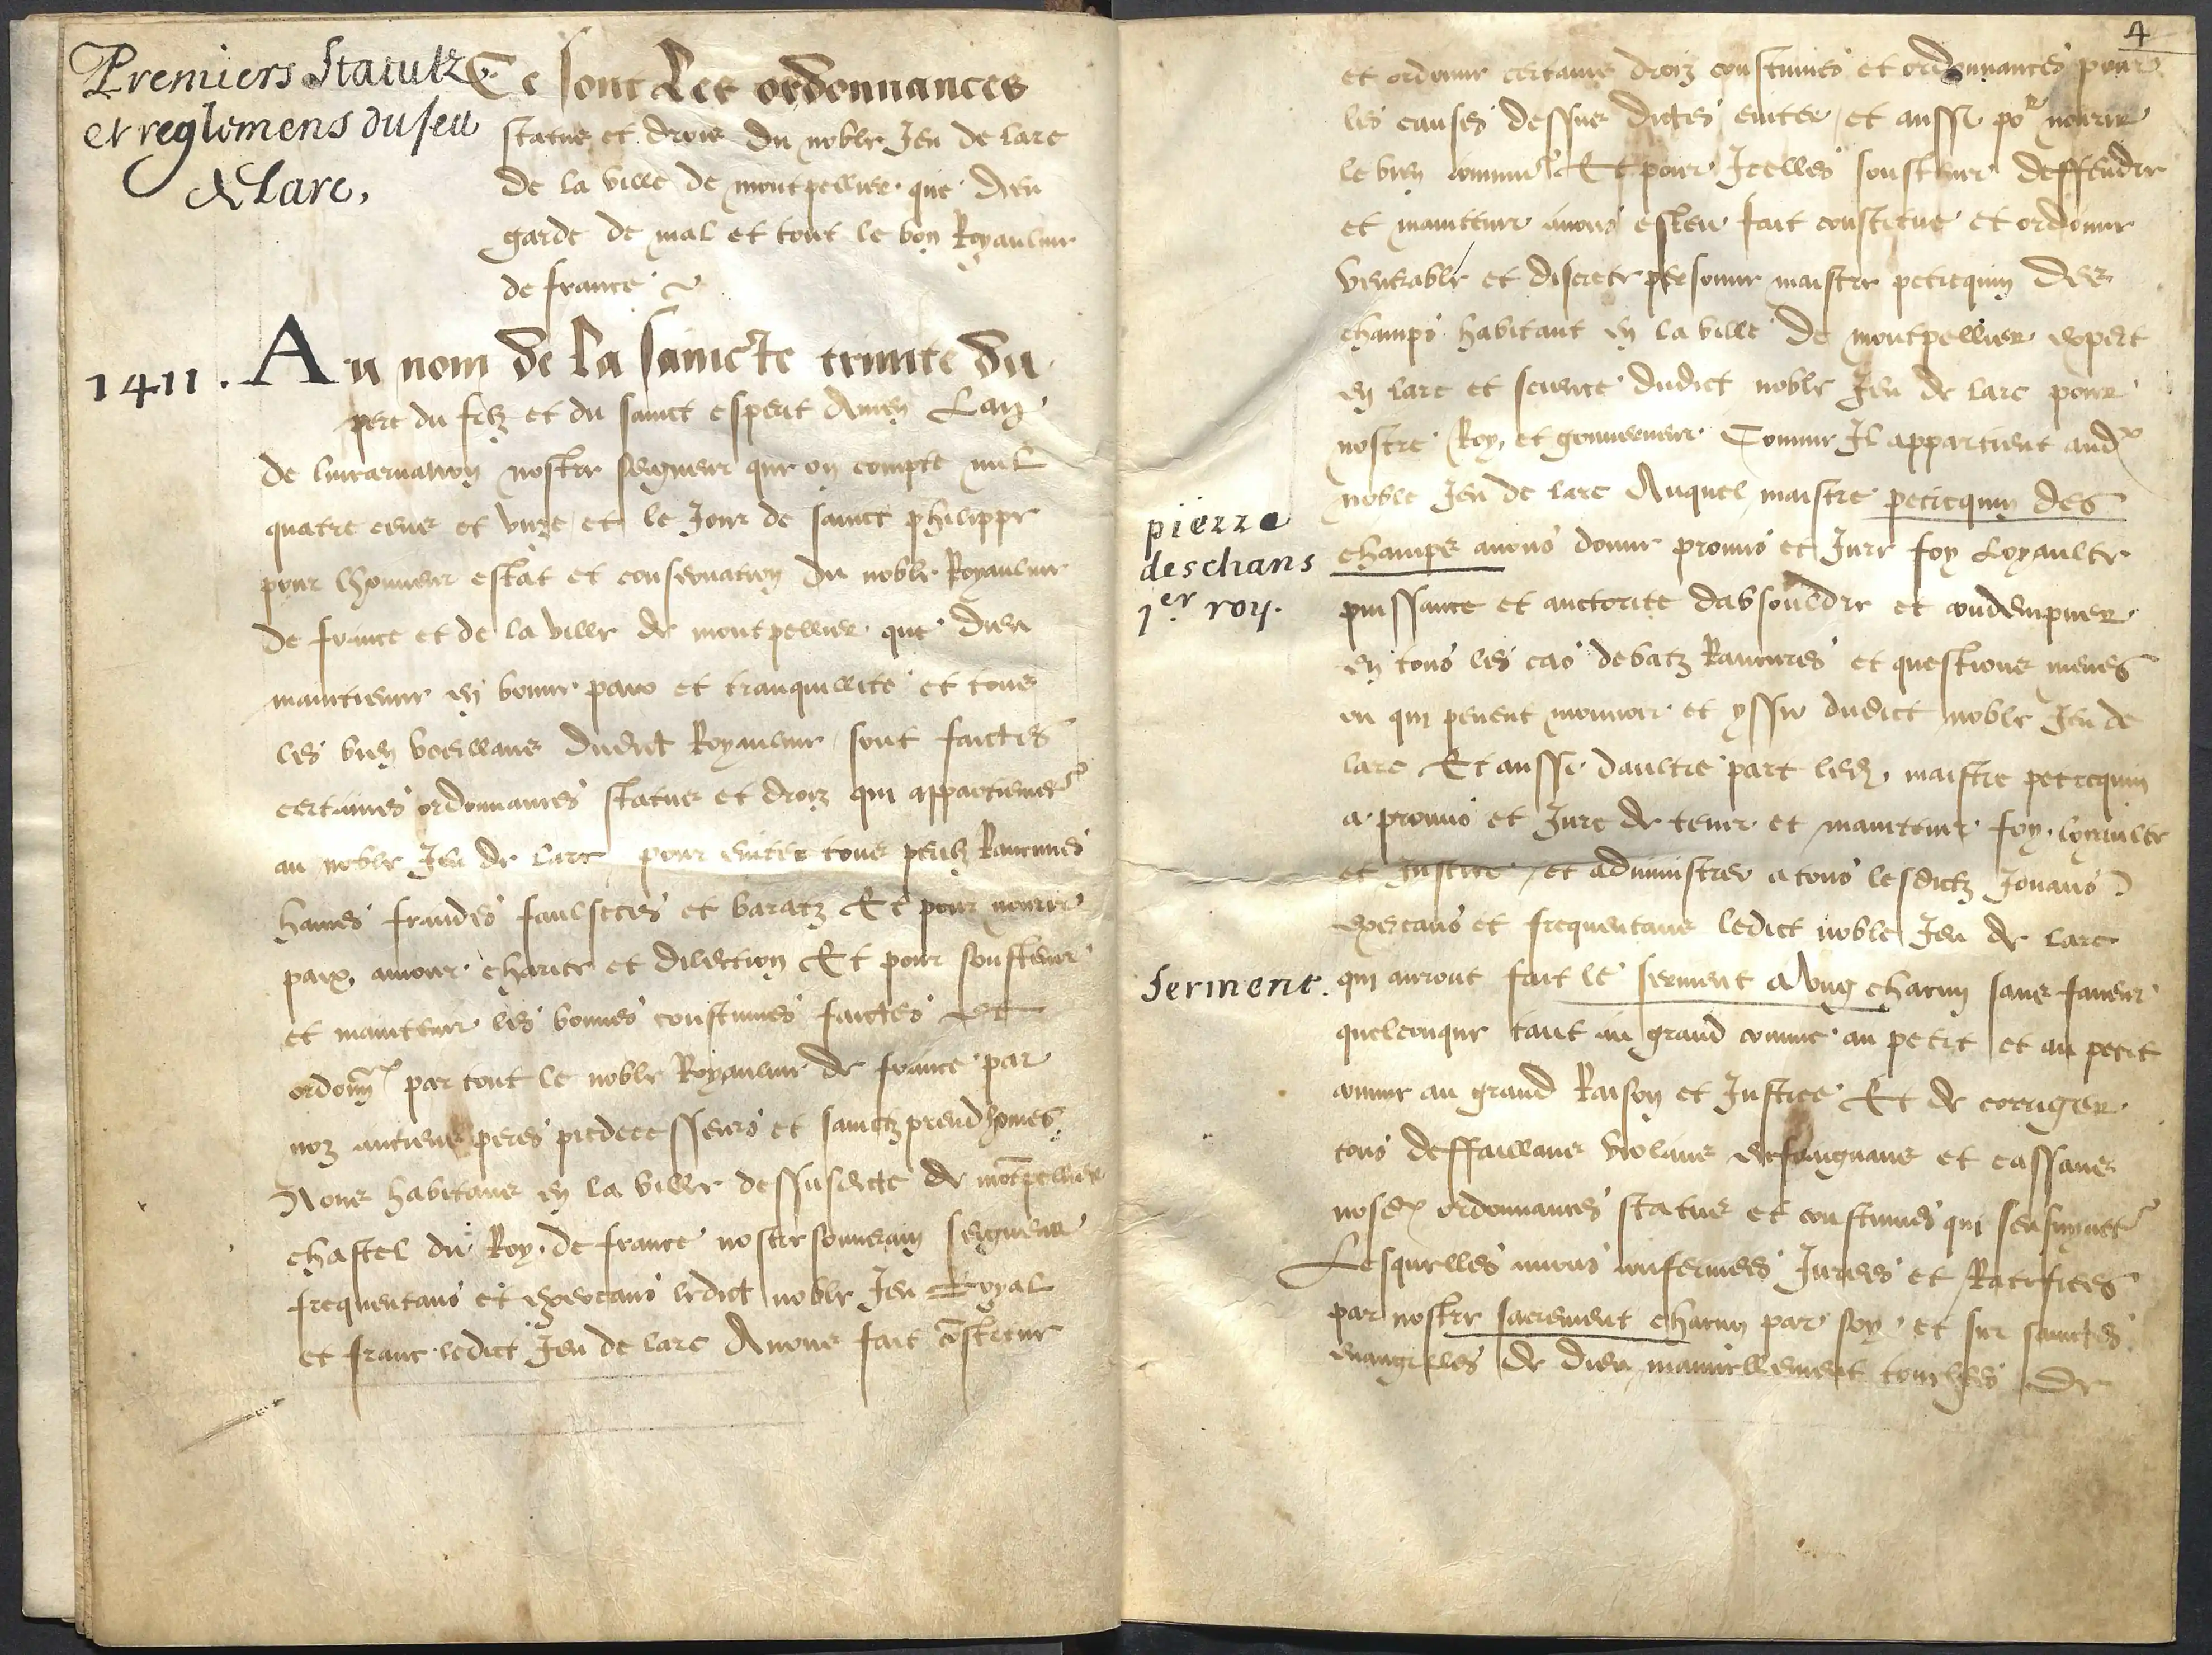 Premiers Statutz
et reglemens du Jeu
de Larc,
Ce sont Les ordonnances
statuz et droiz du noble Jeu de larc
de la ville de montpellier que dieu
garde de mal et tout le bon Royaulme
de france
1411.
Au nom de la saincte trinite du
pere du filz et du sainct esperit Amen Lan
de lincarnation nostre seigneur que on compte mil
quatre cens et unze et le Jour de sainct philippe
pour lhonneur estat et conservation du noble Royaulme
de france et de la ville de montpellier que dieu
maintienne en bonne paix et tranquillite et tous
les bien veillans dudict Royaulme sont faictes
certaines ordonnances statuz et droiz qui appartiennet
au noble Jeu de larc pour eviter tous perilz Rancunes
haines fraudes faulsetes et baratz Et pour nourrir
paix amour charite et dilection Et pour soustenir
et maintenir les bonnes coustumes faictes et
ordonn par tout le noble Royaulme de france par
noz anciens peres predecesseurs et sainctz preudhomes
Nous habitans en la ville dessusdicte de motpellier
chastel du Roy de france nostre souverain seigneur
frequentans et exercans ledict noble Jeu Loyal
et franc ledict Jeu de larc Avons fait costitue
4
et ordonne certains droiz coustumes et ordonnances pour
les causes dessus dictes eviter et aussi por nourrir
le bien commu Et pour Icelles soustenir deffendre
et maintenir avons esleu fait constitue et ordonne
venerable et discrete personne maistre petrequin des
champs habitant en la ville de montpellier expert
en larc et science dudict noble Jeu de larc pour
nostre Roy et gouverneur Comme Il appartient aud
noble Jeu de larc Auquel maistre petrequin des
pierre
deschans
1er roy.
champs avons donne promis et Jure foy Loyaulte
puissance et auctorite dabsouldre et condempner
en tous les cas debatz Rancunes et questions menes
ou qui peuent mouuoir et yssir dudict noble Jeu de
larc Et aussi daultre part led maistre petrequin
a promis et Jure de tenir et maintenir foy loyaulte
et Justice et administrer a tous lesdictz Jouans
exercans et frequentans ledict noble Jeu de larc
Serment.
qui auront fait le serment a Ung chacun sans faveur
quelconque tant au grand comme au petit et au petit
comme au grand Raison et Justice Et de corriger
tous deffaillans violans enfraignans et cassans
nosd ordonnances statuz et coustumes qui sensuyuet
Lesquelles avons confermees Jurees et Ratifiees
par nostre sacrement chacun par soy et sur sainctes
evangilles de dieu manuellement touchees de